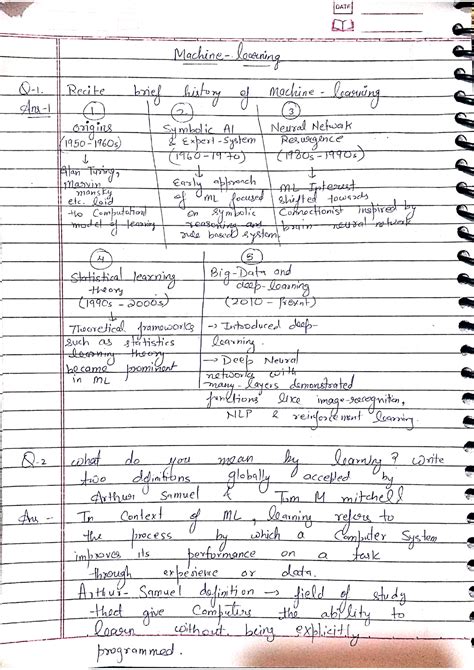 DATE
Machine-learning
Q-1. Recite brief history of Machine-learning
Ans-1
1
Origins
(1950-1960s)
Alan Turing,
Marvin
mansky
etc. laid
the Computational
model of learning
2
Symbolic AI
& Expert-System
(1960-1970)
Early approach
of ML focused
on symbolic
reasoning and
rule based system
3
Neural Network
Resurgence
(1980s-1990s)
ML Interest
shifted towards
Connectionist inspired by
brain neural network
4
Statistical learning
theory
(1990s-2000s)
Theoretical frameworks
such as statistics
learning theory
became prominent
in ML
5
Big-Data and
deep-learning
(2010-Present)
→ Introduced deep-
learning.
→ Deep Neural
networks with
many-layers demonstrated
functions like image-recogniton,
NLP & reinforcement learning.
Q-2 what do you mean by learning? Write
two definitions globally accepted by
Arthur Samuel & Tom M mitchell
Ans- In Context of ML, learning refers to
the process by which a Computer System
improves its performance on a task
through experience or data.
Arthur-Samuel definition → field of study
that give Computers the ability to
learn without being explicitly
programmed.